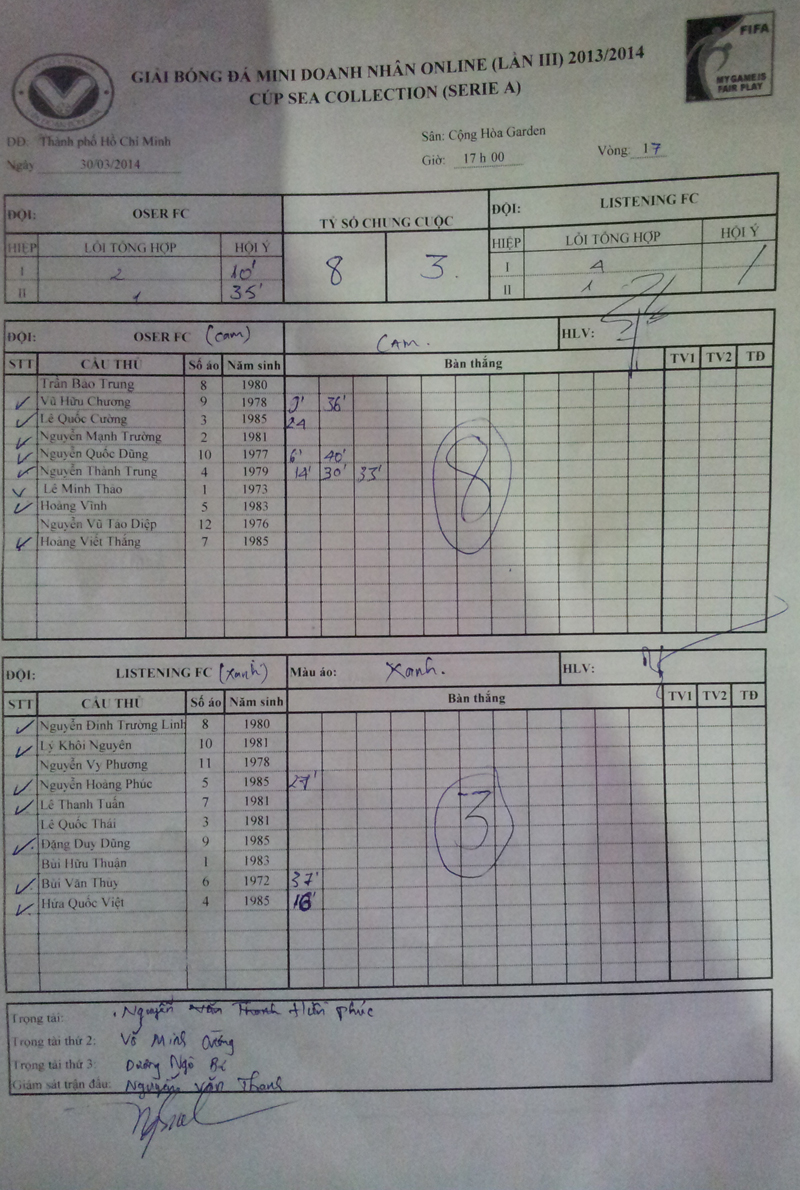 GIẢI BÓNG ĐÁ MINI DOANH NHÂN ONLINE (LẦN III) 2013/2014
CÚP SEA COLLECTION (SERIE A)
FIFA
MY GAME IS
FAIR PLAY
DĐ: Thành phố Hồ Chí Minh
Sân: Cộng Hòa Garden
Ngày 30/03/2014
Giờ: 17 h 00
Vòng: 17
ĐỘI: OSER FC TỶ SỐ CHUNG CUỘC ĐỘI: LISTENING FC
HIỆP LỖI TỔNG HỢP HỘI Ý 8 3 HIỆP LỖI TỔNG HỢP HỘI Ý
I 2 10' I 4 /
II 1 35' II 1
ĐỘI: OSER FC (cam) CAM. HLV:
STT CẦU THỦ Số áo Năm sinh Bàn thắng TV1 TV2 TĐ
Trần Bảo Trung 8 1980
✓ Vũ Hữu Chương 9 1978 36'
✓ Lê Quốc Cường 3 1985 24
✓ Nguyễn Mạnh Trường 2 1981
✓ Nguyễn Quốc Dũng 10 1977 6' 40'
✓ Nguyễn Thành Trung 4 1979 14' 30' 33'
✓ Lê Minh Thảo 1 1973
✓ Hoàng Vĩnh 5 1983
Nguyễn Vũ Tao Diệp 12 1976
✓ Hoàng Viết Thắng 7 1985
8
ĐỘI: LISTENING FC (Xanh) Màu áo: Xanh. HLV:
STT CẦU THỦ Số áo Năm sinh Bàn thắng TV1 TV2 TĐ
✓ Nguyễn Đình Trường Linh 8 1980
✓ Lý Khôi Nguyên 10 1981
Nguyễn Vy Phương 11 1978
✓ Nguyễn Hoàng Phúc 5 1985 27'
✓ Lê Thanh Tuấn 7 1981
Lê Quốc Thái 3 1981
✓ Đặng Duy Dũng 9 1985
Bùi Hữu Thuận 1 1983
✓ Bùi Văn Thuy 6 1972 37'
✓ Hứa Quốc Việt 4 1985 16'
3
Trọng tài: Nguyễn Phúc
Trọng tài thứ 2: Võ Minh Cường
Trọng tài thứ 3: Dương Ngô Bé
Giám sát trận đấu: Nguyễn Văn Thanh